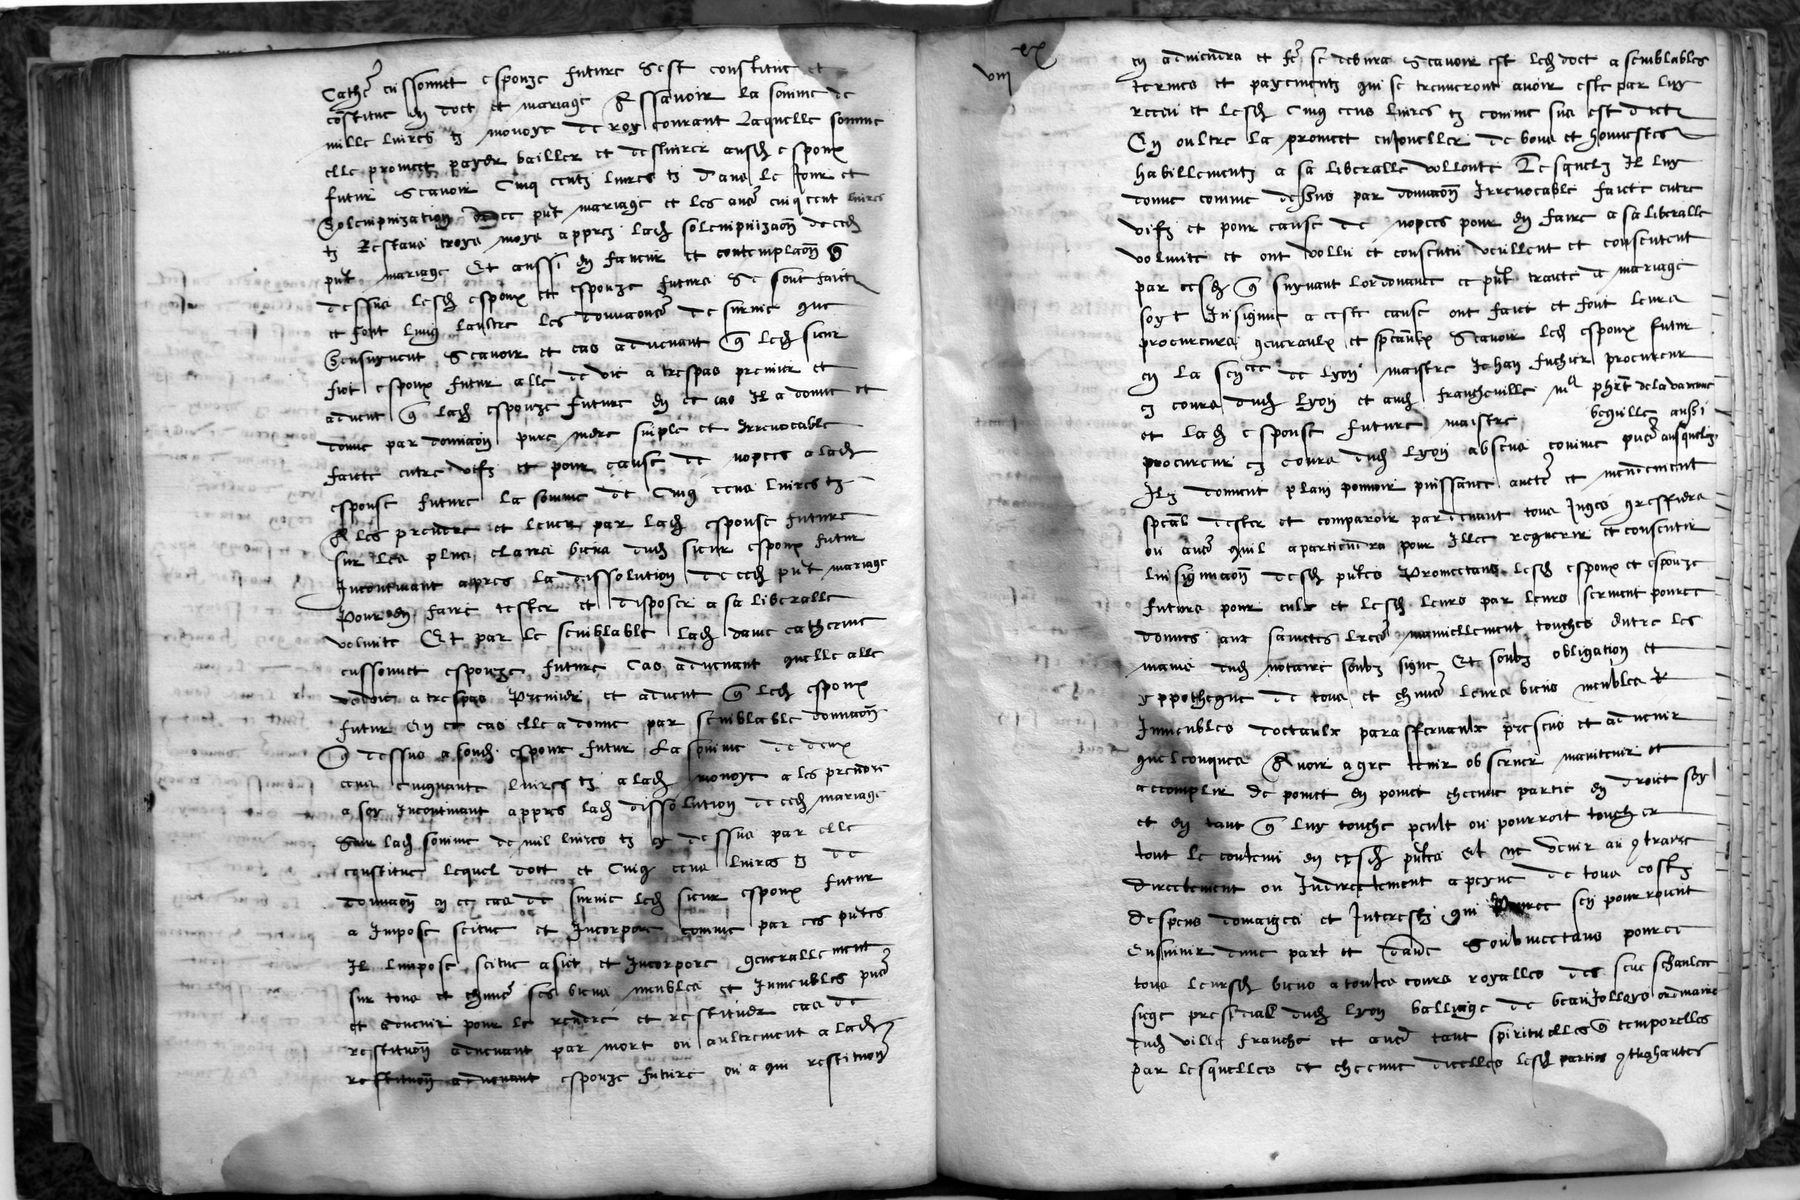 Cathe cussonnet espouze future Sest constitue et
constitue en doct et mariage Assavoir la somme de
mille livres tz monoye de roy courant Laquelle somme
elle promect payer bailler et deslivrer ausd espoux
futur Scavoir Cinq centz livres tz dans le Jour et
Solempnization de ce pnt mariage et les aues cinq cent livres
tz Restans troys moys apprez lad solempnizaon de ced
pnt mariage Et aussi en faveur et contemplaon q
dessus lesd espoux et espouze futurs Se sont faictz
et font Lung Laultre les donnaons de survie que
Sensuyvent Scavoir et cas advenant q led sieur
fiot espoux futur alle de vie a trespas premier et
advent q lad espouze future En ce cas Il a donne et
donne par donnaon pure mere simple et Irrevocable
faicte entre vifz et pour cause de nopces a lad
espouse future la somme de Cinq cens livres tz
A les prendre et lever par lad espouse future
sur Les plus clairs biens dud sieur espoux futur
Incontinant apres la dissolution de ced pnt mariage
Pour en faire tester et disposer a sa liberalle
volunte Et par le semblable lad dame catherine
cussonnet espouze future Cas advenant quelle alle
de vie a trespas Premier et advent q led espoux
futur En ce cas elle a donne par semblable donnaon
q dessus a sond espoux futur La somme de deux
cens cinquante livres tz a lad monoye a les prendre
a soy Incontinant appres lad dissolution de ced mariage
Sur lad somme de mil livres tz cy dessus par elle
constitue lequel doct et Cinq cens livres tz de
donnaon en ce cas de survie led sieur espoux futur
a Impose scitue et Incorpore comme par ces pntes
Il Impose scitue asiet et Incorpore generallement
sur tous et chuns ses biens meubles et Inmeubles pns
et advenir pour le rendre et restituer cas de
restituon advenant par mort ou aultrement a lad
restituon advenant espouze future ou a qui restituon
viii xx
en adviendra et fe se debvra Scavoir est led doct a semblables
termes et payementz qui se treuveront avoir este par luy
receu et lesd Cinq cens livres tz comme sus est dict
En oultre la promect enjoueller de bons et honnestes
habillementz a sa liberalle vollonte Lesquelz Il luy
donne comme dessus par donnaon Irrevocable faicte entre
vifz et pour cause de nopces pour en faire a sa liberalle
volunte et ont vollu et consentu veullent et consentent
par cesd q suyvant lordonnance ce pnt traicte de mariage
soyt Insignue a ceste cause ont faict et font leurs
procureurs generaulx et speaulx Scavoir led espoux futur
en la senee de lyon maistre Jehan fuchier procureur
es cours dud lyon et aud franche ville me phrt de la varenne
et lad espouse future maistre beguille aussi
procureur es cours dud lyon absens comme pns ausquelz
Ilz donnent plain pouvoir puissance aucte et mendement
speal dester et comparoir pardevant tous Juges
ou aues quil apartiendra pour Illec requerir et consentir
linsignuaon desd pntes Promectans lesd espoux et espouze
futurs pour eulx et lesd leurs par leurs serment pource
donnes aux sainctes manuellement touches Entre les
mains dud notaire soubz signe Et soubz obligation et
yppotheque de tous et chuns leurs biens meubles et
Inmeubles doctaulx parasfernaulx presens et advenir
quelconques Avoir agre tenir observer maintenir et
acomplir de poinct en poinct checune partie en droit soy
et en tant q luy touche peult ou pourroit toucher
tout le contenu en cesd pntes Et ne venir au contraire
directement ou Indirectement a peyne de tous costz
despens domaiges et Interestz qui pource sen pourroient
ensuivir dune part et daue Soubmectans pource
tous leursd biens a toutes cours royalles des seneschaulcee
siege presidial dud lyon balliage de beaujolloys ordinaire
dud ville franche et aues tant spirituelles q temporelles
par lesquelles et checune dicelles lesd parties contrahantes